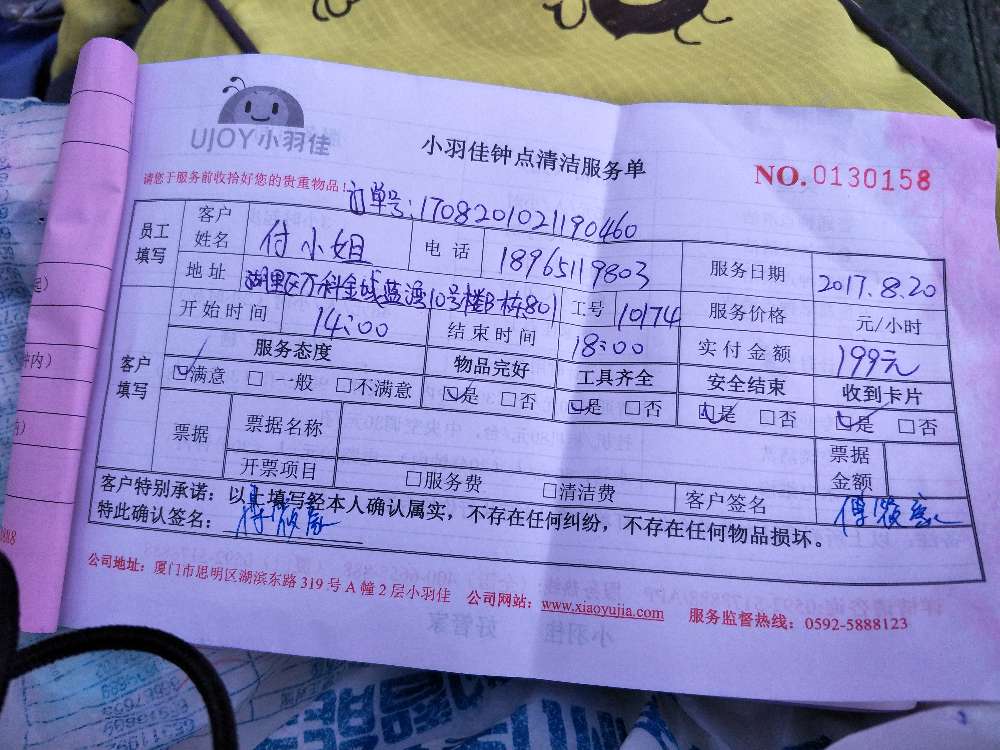 UJOY小羽佳
小羽佳钟点清洁服务单
NO.0130158
请您于服务前收拾好您的贵重物品!
订单号:1708201021190460
员工填写
客户姓名 付小姐 电话 18965119803 服务日期 2017.8.20
地址 湖里区万科金域蓝湾10号楼B栋801 工号 10174 服务价格 元/小时
客户填写
开始时间 14:00 结束时间 18:00 实付金额 199元
服务态度 物品完好 工具齐全 安全结束 收到卡片
☑满意 □一般 □不满意 ☑是 □否 ☑是 □否 ☑是 □否 ☑是 □否
票据 票据名称 票据金额
开票项目 □服务费 □清洁费 客户签名
客户特别承诺:以上填写经本人确认属实,不存在任何纠纷,不存在任何物品损坏。
特此确认签名:
公司地址:厦门市思明区湖滨东路 319 号 A 幢 2 层小羽佳 公司网站:www.xiaoyujia.com 服务监督热线:0592-5888123